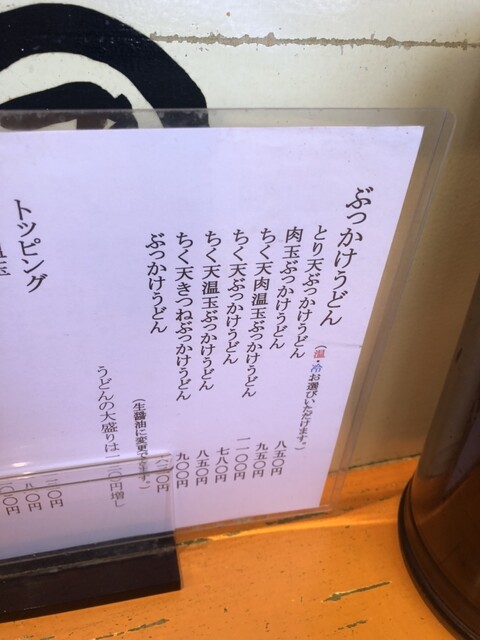 ぶっかけうどん
(温・冷お選びいただけます。)
とり天ぶっかけうどん 八五〇円
肉玉ぶっかけうどん 九五〇円
ちく天肉温玉ぶっかけうどん 一一〇〇円
ちく天ぶっかけうどん 七八〇円
ちく天温玉ぶっかけうどん 八五〇円
ちく天きつねぶっかけうどん 九〇〇円
ぶっかけうどん 〇円
(生醤油に変更できます。)
うどんの大盛りは一二〇円増し
トッピング